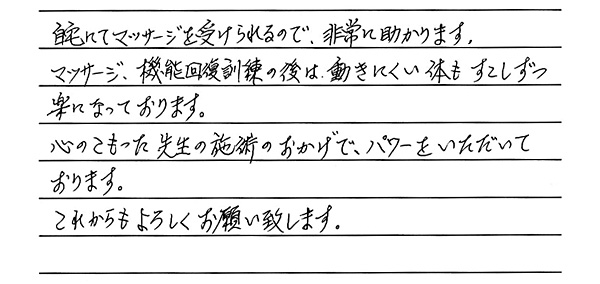 自宅にてマッサージを受けられるので、非常に助かります。
マッサージ、機能回復訓練の後は動きにくい体もすこしずつ
楽になっております。
心のこもった先生の施術のおかげで、パワーをいただいて
おります。
これからもよろしくお願い致します。